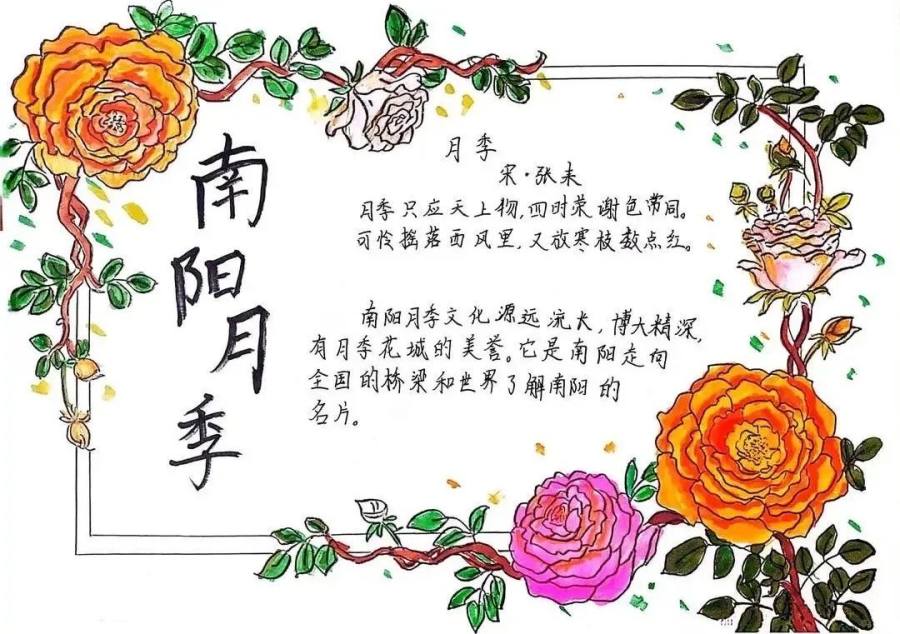 南阳月季
月季
宋·张耒
月季只应天上物,四时荣谢色常同。
可怜摇落西风里,又放寒枝数点红。
南阳月季文化源远流长,博大精深,
有月季花城的美誉。它是南阳走向
全国的桥梁和世界了解南阳的
名片。